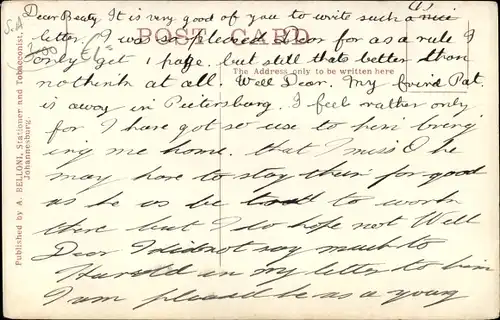 S.A
1200
Dear Beaty It is very good of you to write such a nice
letter. I was so pleased Dear for as a rule I
POST CARD
only get 1 page. but still thats better than
The Address only to be written here
nothink at all. Well Dear. My frind Pat
is away in Peitersburg. I feel rather only
for I have got so use to him bring
ing me home. that I miss O he
may have to stay their for good
as he as be to worth
there but I do hope not Well
Dear I did not say much to
Harold in my letter to him
I am pleased he as a young
Published by A. BELLONI, Stationer and Tobacconist,
Johannesburg.